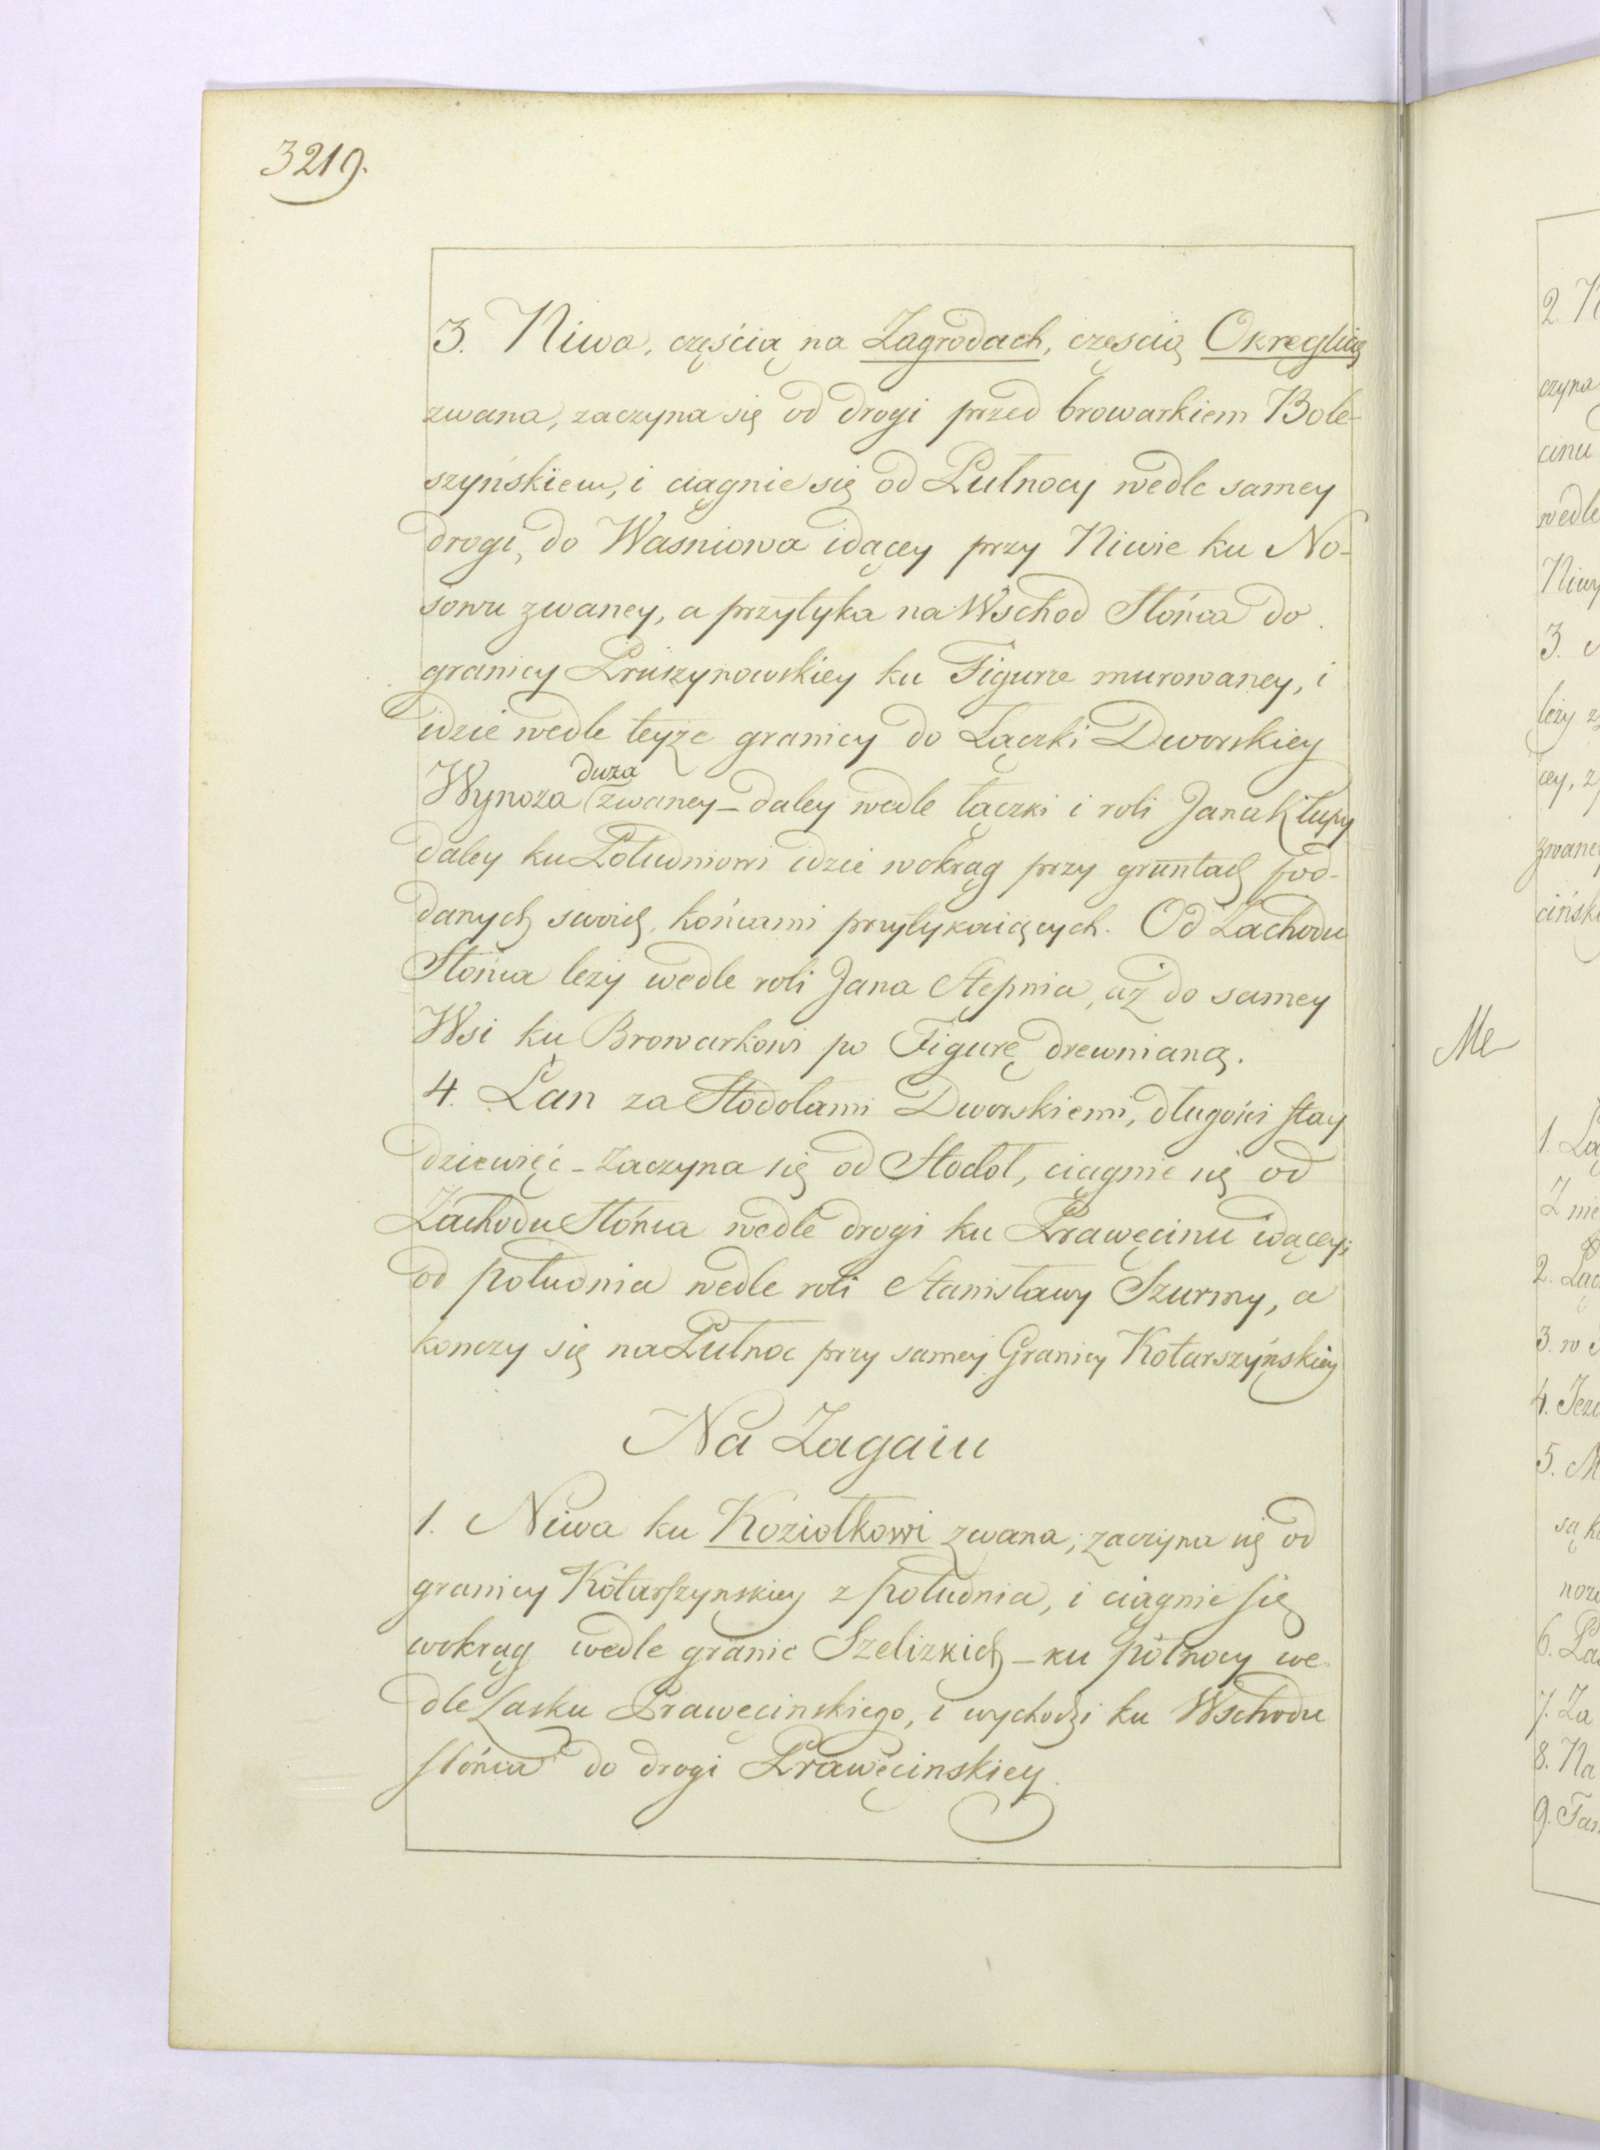 3219.
3. Niwa, częścią na Zagrodach, częscią Okręglicą
zwana, zaczyna się od drogi przed browarkiem Bole-
szyńskiem, i ciągnie się od Pułnocy wedle samey
drogi, do Wasniowa idącey przy Niwie ku No-
sowu zwaney, a przytyka na Wschod Słońca do
granicy Pruszynowskiey ku Figurze murowaney, i
idzie wedle teyże granicy do Łączki Dworskiey
duża
Wynoza zwaney - daley wedle łączki i roli Jana Kłupy
daley ku Południowi idzie wokrąg przy gruntach pod-
danych swoich końcami przytykaiących. Od Zachodu
Słońca leży wedle roli Jana Stępnia, aż do samey
Wsi ku Browarkowi po Figurę drewnianą.
4. Łan za Stodołami Dworskiemi, długości stay
dziewięć - Zaczyna się od Stodoł, ciągnie się od
Zachodu Słońca wedle drogi ku Prawęcinu idącey;
od południa wedle roli Stanisławy Szurmy, a
konczy się na Pułnoc przy samey Granicy Kotarszyńskiey
Na Zagaiu
1. Niwa ku Koziołkowi zwana, zaczyna się od
granicy Kotarszynskiey z południa, i ciągnie się
wokrąg wedle granic Szelizkich - ku północy we-
dle Lasku Prawęcinskiego, i wychodzi ku Wschodu
słońca do drogi Prawęcinskiey.
2. N
czyna
cinu
wedle
Niwy
3.
leży z
cey, z
zwaney
cińsk
Me
1. Łą
Z nie
2. Łąc
3. w
4. Jezi
5. M
są k
6. Łą
7. Za
8. Na
9. Tam